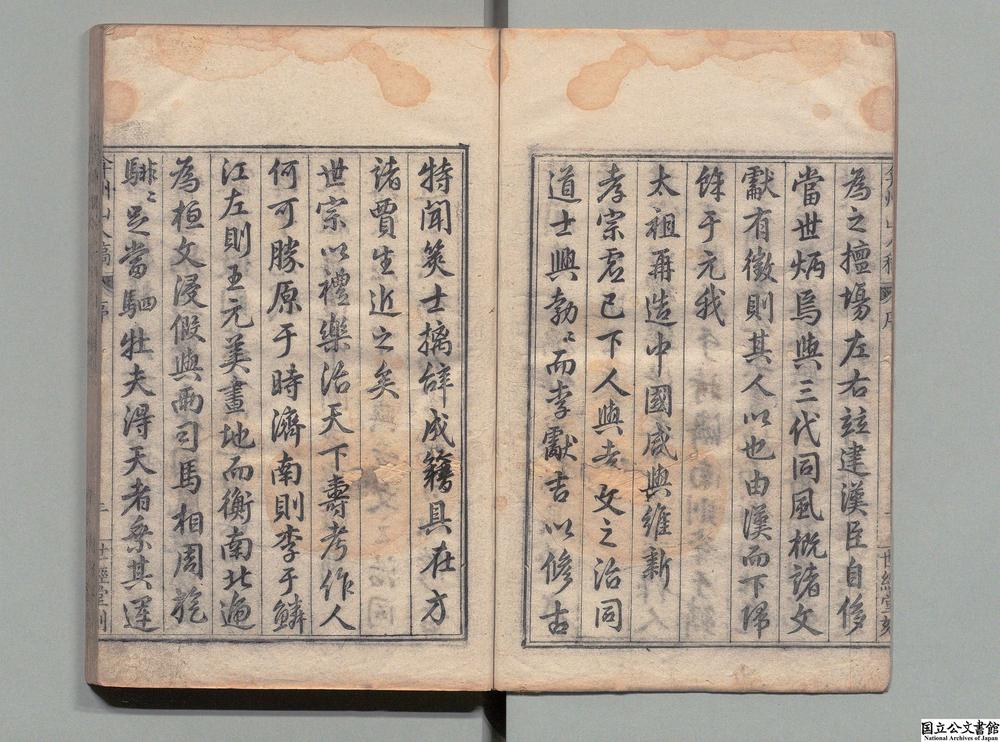 為之擅場左右玆建漢臣自侈
當世炳焉與三代同風概諸文
獻有徵則其人以也由漢而下帰
餘于元我
太祖再造中國咸與維新
孝宗君已下人與者文之治同
道士興勃〻而李獻吉以修古
特聞筴士摛辞成籍具在方
諸賈生近之矣
世宗以禮樂治天下壽考作人
何可勝原于時濟南則李于鱗
江左則王元美畫地而衡南北遞
為桓文浸假與兩司馬相周旋
騑〻足當駟牡夫淂天者乗其運
弇州山人稿
序
世經堂刻
国立公文書館
National Archives of Japan